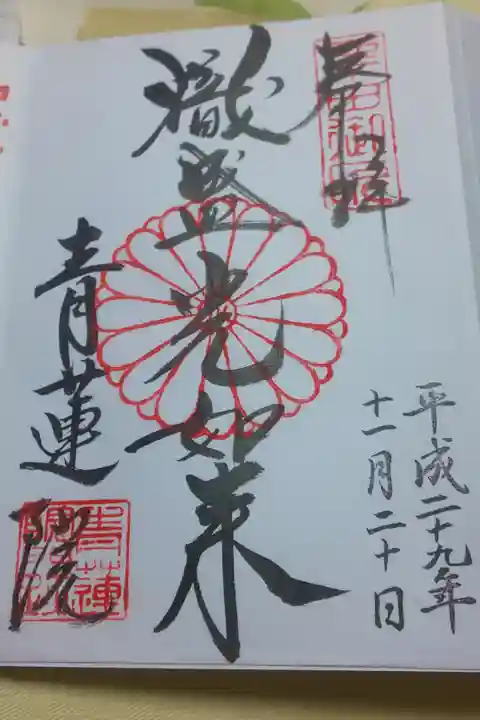 奉拝
粟田御所
平成二十九年
十一月二十日
熾盛光如来
青蓮院
青蓮